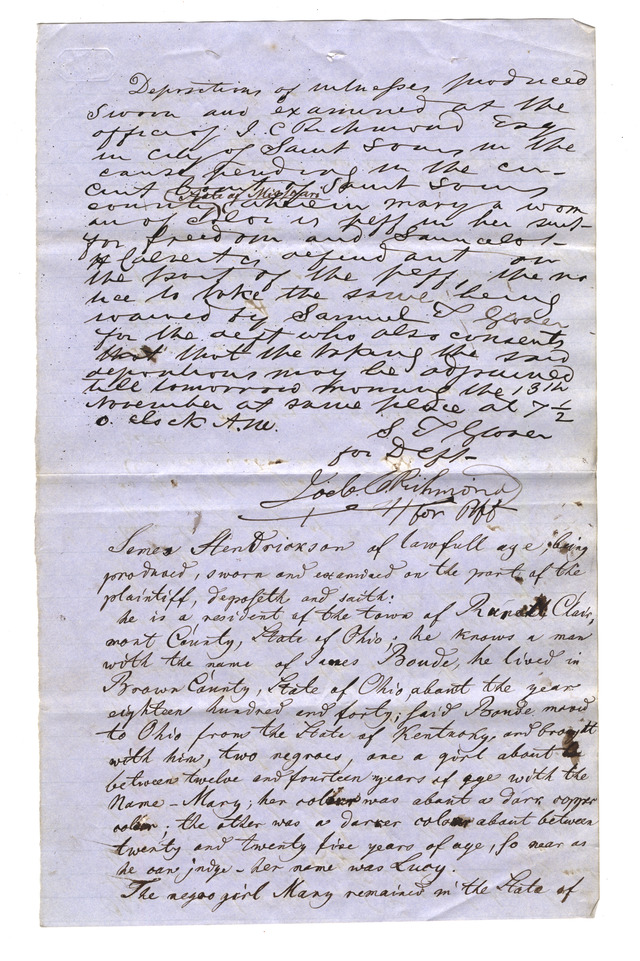 Depositions of witnesses produced
Sworn and examined at the
office of J. C Richmond Esq
in city of Saint Louis in the
cause pending in the cir-
cuit court Saint Louis
State of Missouri
county wherein mary a wom
an of Color is peff in her suit
for freedom and Samuel
H Calvert is defendant on
the part of the peff, the no
tice to take the same being
waived by Samuel T Glover
for the deft who also consents
that that the taking the said
depositions may be adjourned
till tomorrow morning the 13th
November at same place at 7 1/2
o. clock A.M.
S T Glover
for Deft
Jacb. C Richmond
for Plff
James Hendrickson of lawfull age, being
producd, sworn and examined on the part of the
plaintiff, deposeth and saith:
he is a resident of the town of Clair,
mont County, State of Ohio; he knows a man
with the name of James Boude, he lived in
Brown County, State of Ohio about the year
eighteen hundred and forty; said Boude moved
to Ohio from the State of Kentucky, and brought
with him, two negroes, one a girl about
between twelve and fourteen years of age with the
Name - Mary; her colour was about a dark copper
colour; the other was a darker colour about between
twenty and twenty five years of age, so near as
he can judge - her name was Lucy.
The negro girl Mary remained in the State of